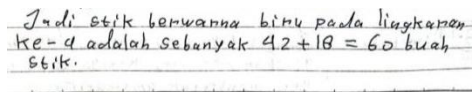 Jadi stik berwarna biru pada lingkaran
ke-4 adalah sebanyak 42 + 18 = 60 buah
stik.